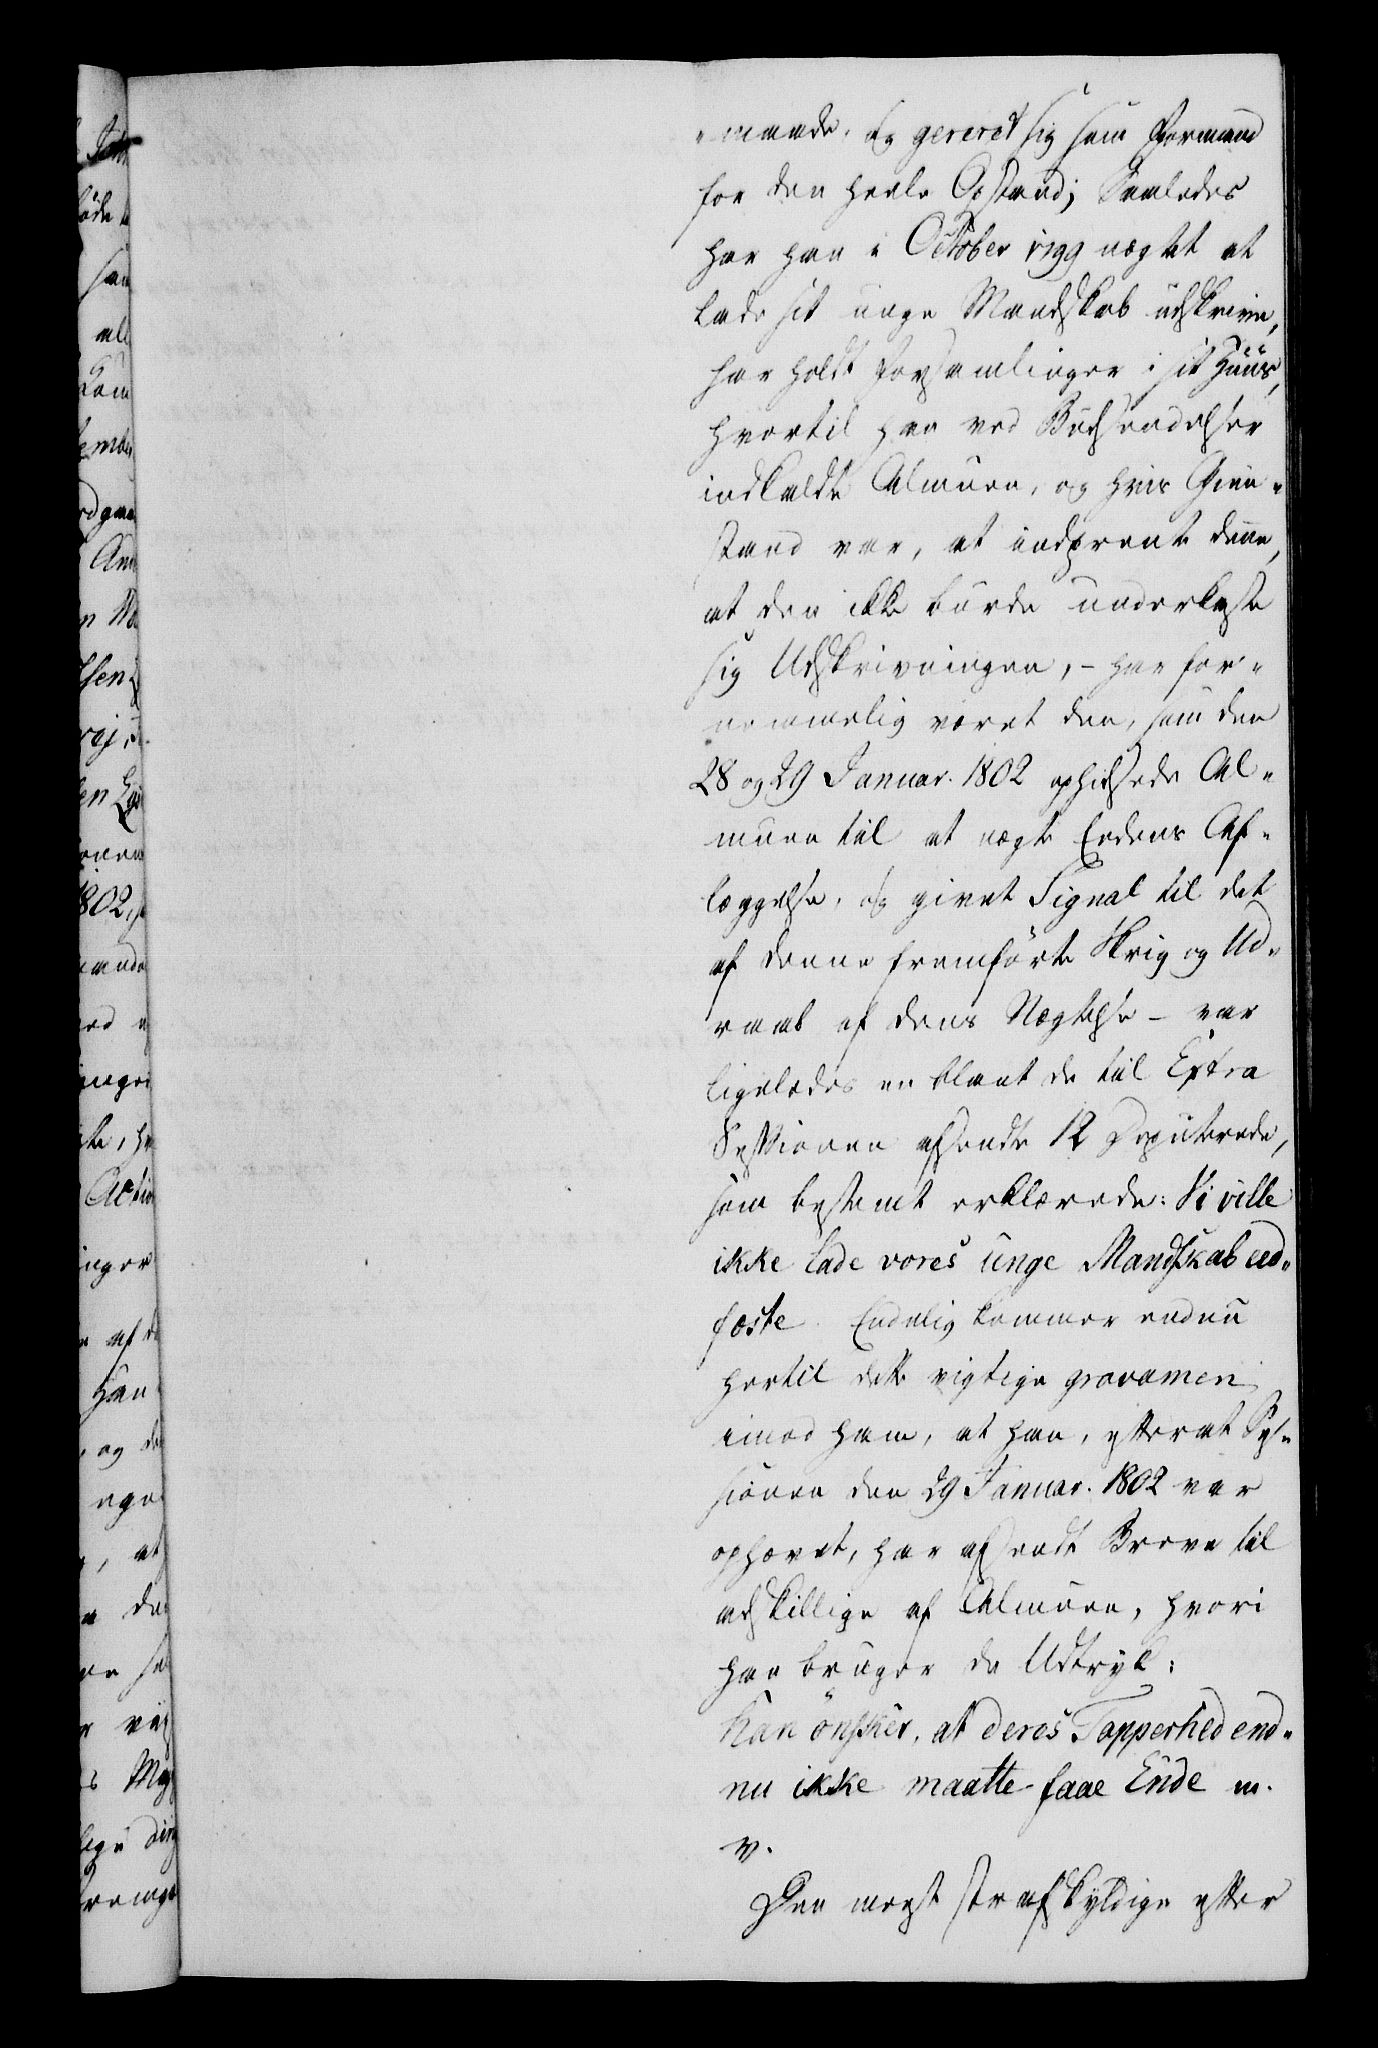 "maade, og gereret sig som Formand
for den heele Opstand; Saaledes
har han i October 1799 nægtet at
lade sit unge Mandskab udskrive,
har holdt Forsamlinger i sit Huus,
hvortil han ved Budsendelser
indkaldte Almuen, og hvis Gien-
stand var, at indprente denne,
at den ikke burde underkaste
sig Udskrivningen, – har for-
nemmelig været den, som den
28 og 29 Januar. 1802 ophidsede Al-
muen til at nægte Eedens Af-
læggelse, og givet Signal til det
af denne fremførte Skrig og Ud-
raab af dens Nægtelse – var
ligeledes en blant de til Extra
Sessionen afsendte 12 Deputerede,
som bestemt erklærede: Vi ville
ikke lade vores unge Mandskab eed-
fæste. Endelig kommer endnu
hertil dette vigtige gravamen
imod ham, at han, efterat Ses-
sionen den 29 Januar. 1802 var
ophævet, har afsendt Breve til
adskillige af Almuen, hvori
han bruger de Udtryk:
Han önsker, at deres Tapperhed end-
nu ikke maatte faae Ende m.
v.
Den meest strafskyldige efter